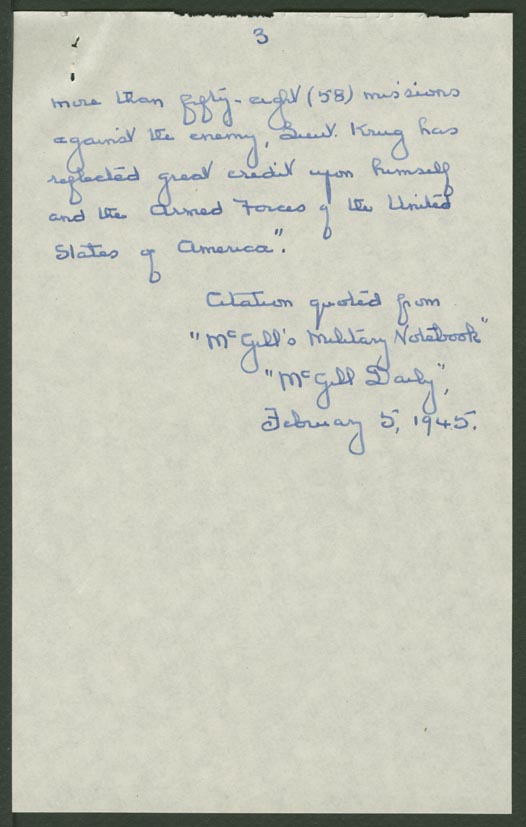 3
more than fifty-eight (58) missions
against the enemy, Lieut. Krug has
reflected great credit upon himself
and the Armed Forces of the United
States of America".
Citation quoted from
"McGill's Military Notebook"
"McGill Daily",
February 5, 1945.